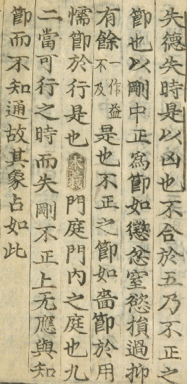 失德失時是以凶也不合於五乃不正之
節也以剛中正爲節如懲忿窒慾損過抑
有餘一作益不及是也不正之節如嗇節於用
懦節於行是也本義門庭門內之庭也九
二當可行之時而失剛不正上无應與知
節而不知通故其象占如此